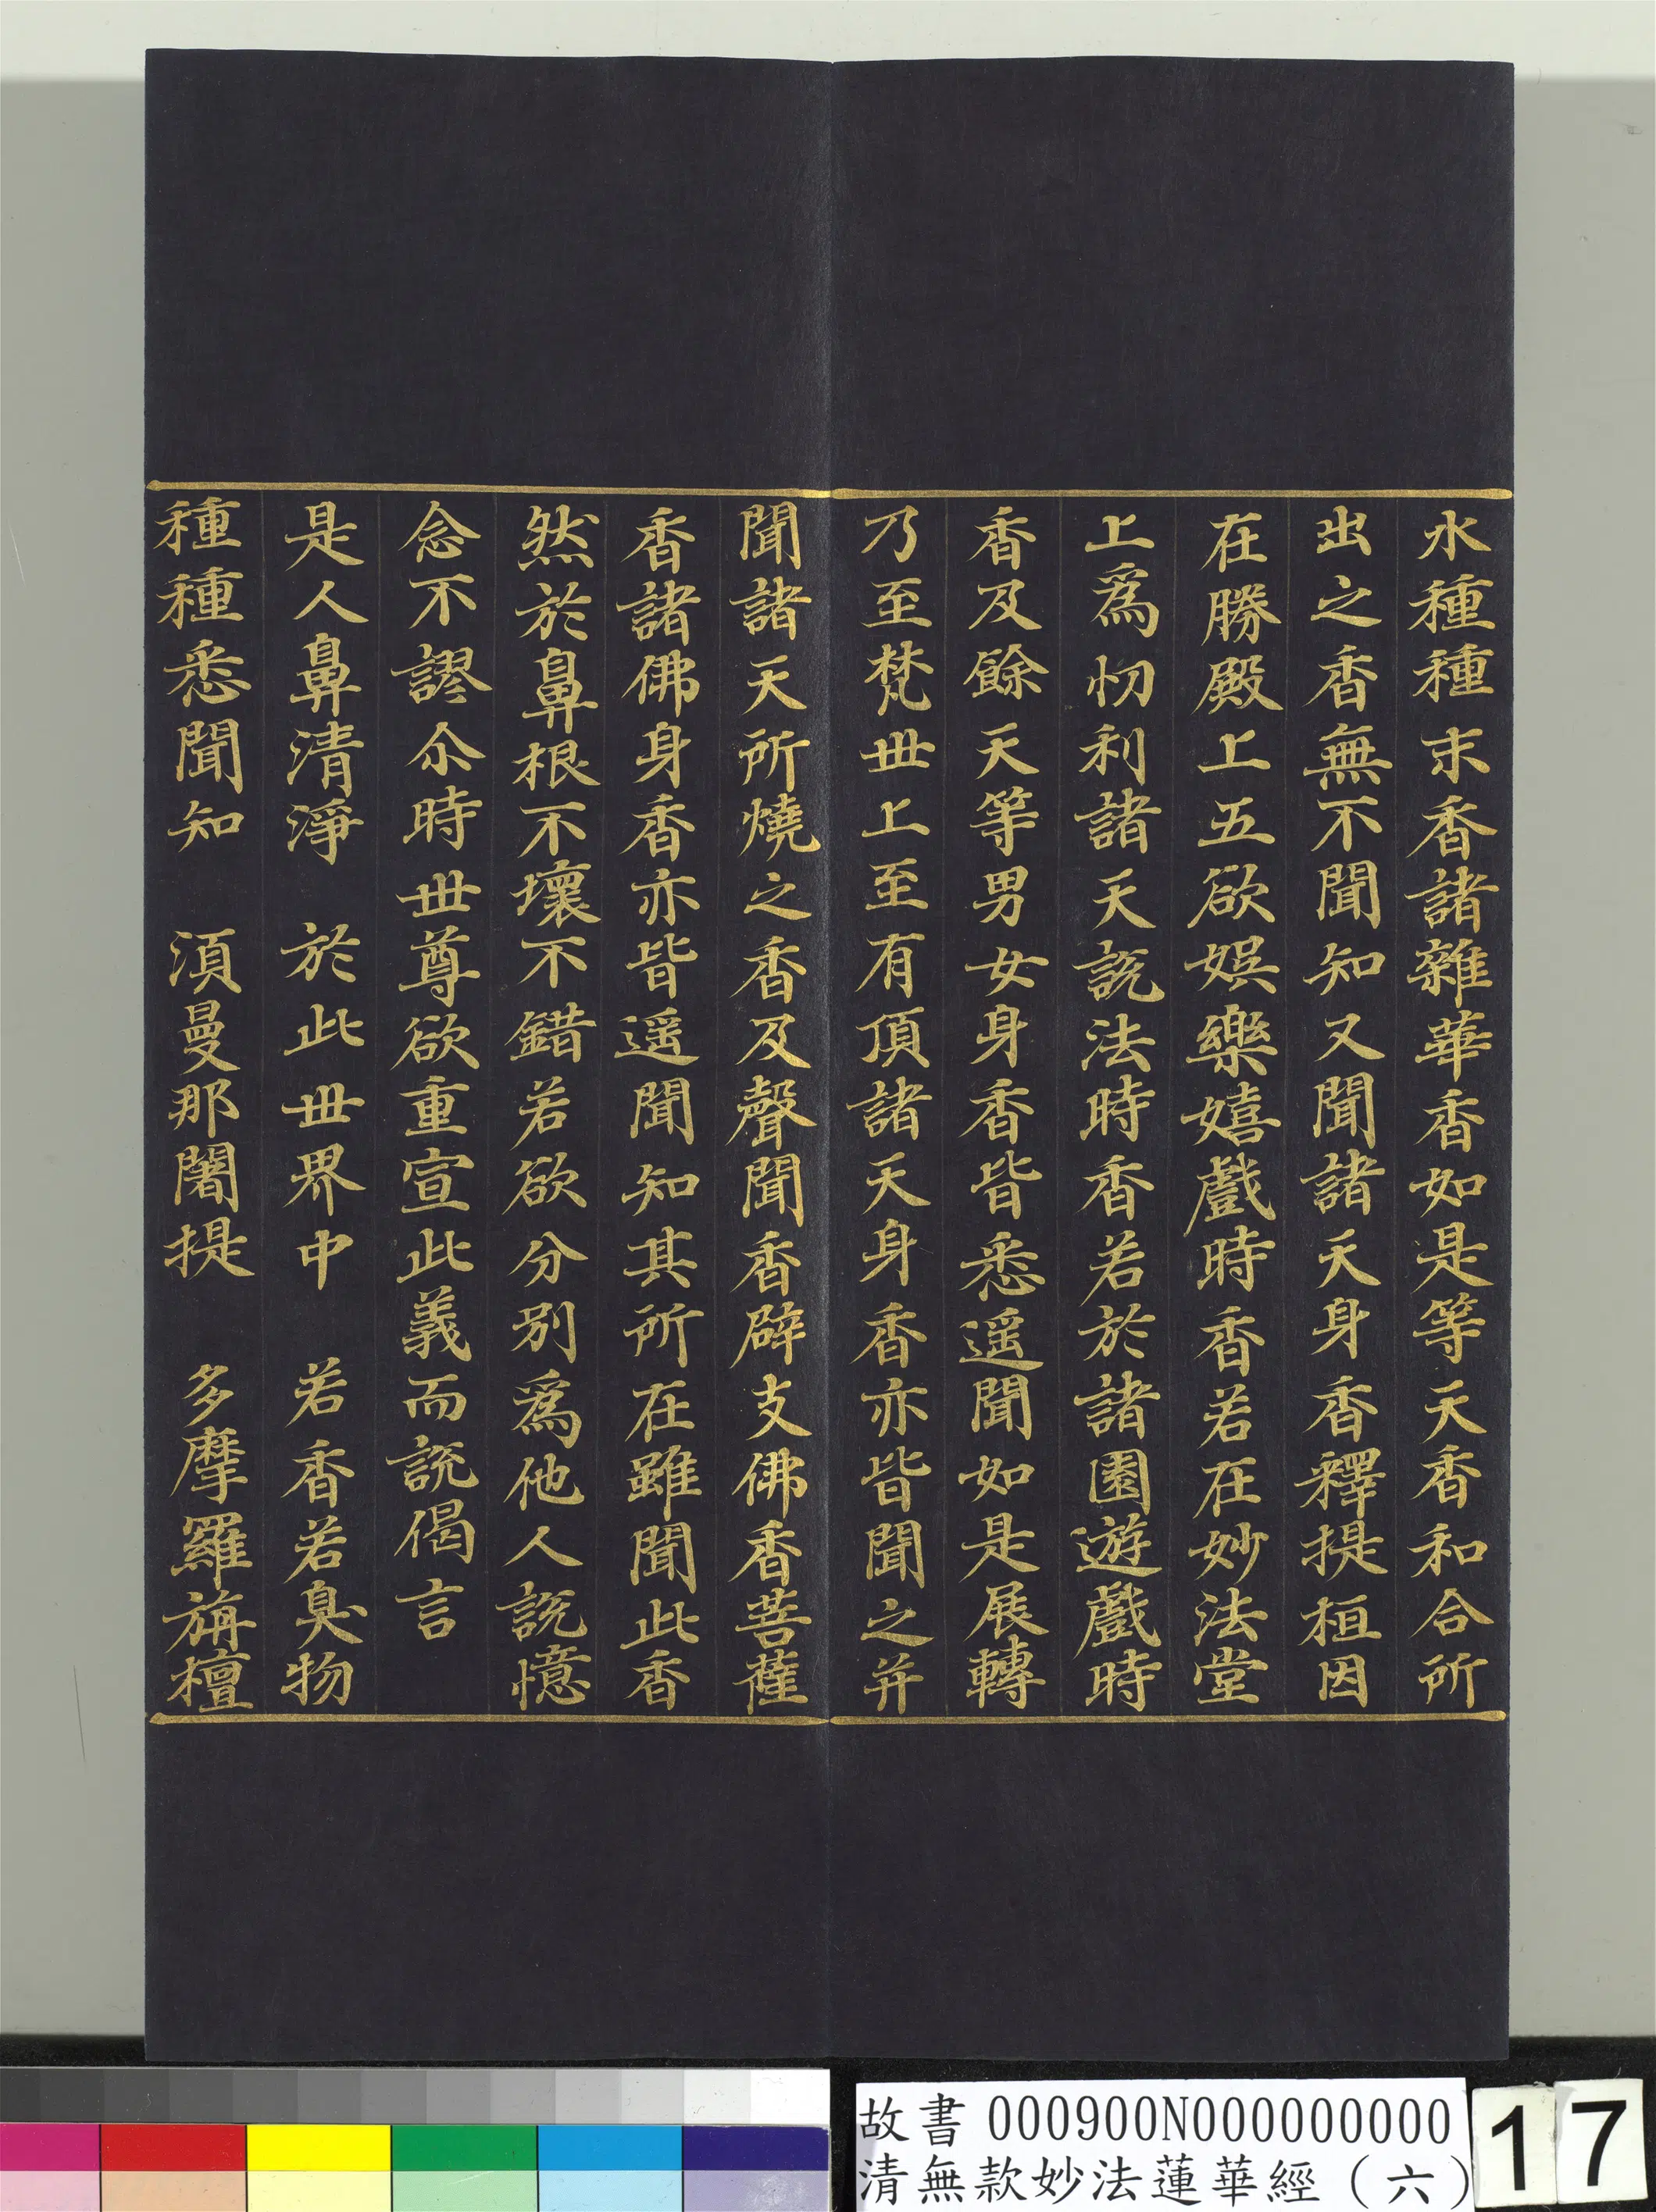 水種種末香諸雜華香如是等天香和合所
出之香無不聞知又聞諸天身香釋提桓因
在勝殿上五欲娛樂嬉戲時香若在妙法堂
上爲忉利諸天說法時香若於諸園遊戲時
香及餘天等男女身香皆悉遥聞如是展轉
乃至梵世上至有頂諸天身香亦皆聞之并
聞諸天所燒之香及聲聞香辟支佛香菩薩
香諸佛身香亦皆遥聞知其所在雖聞此香
然於鼻根不壞不錯若欲分別爲他人說憶
念不謬尒時世尊欲重宣此義而說偈言
是人鼻清淨 於此世界中 若香若臭物
種種悉聞知 須曼那闍提 多摩羅旃檀
故書 000900N000000000
清無款妙法蓮華經（六）
17